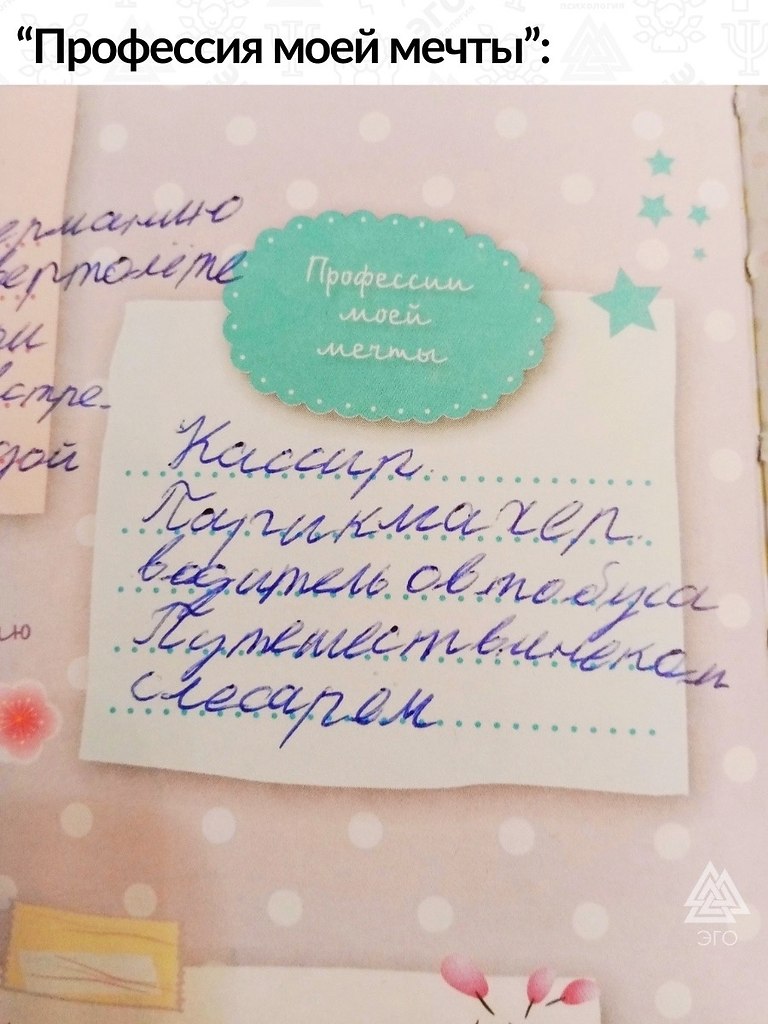 “Профессия моей мечты”:
ерманию
вертолёте
ои
встре-
дой
Профессии
моей
мечты
Кассир.
Парикмахер.
водитель овтобуса
Путешественеком
слесарем
ию
ЭГО